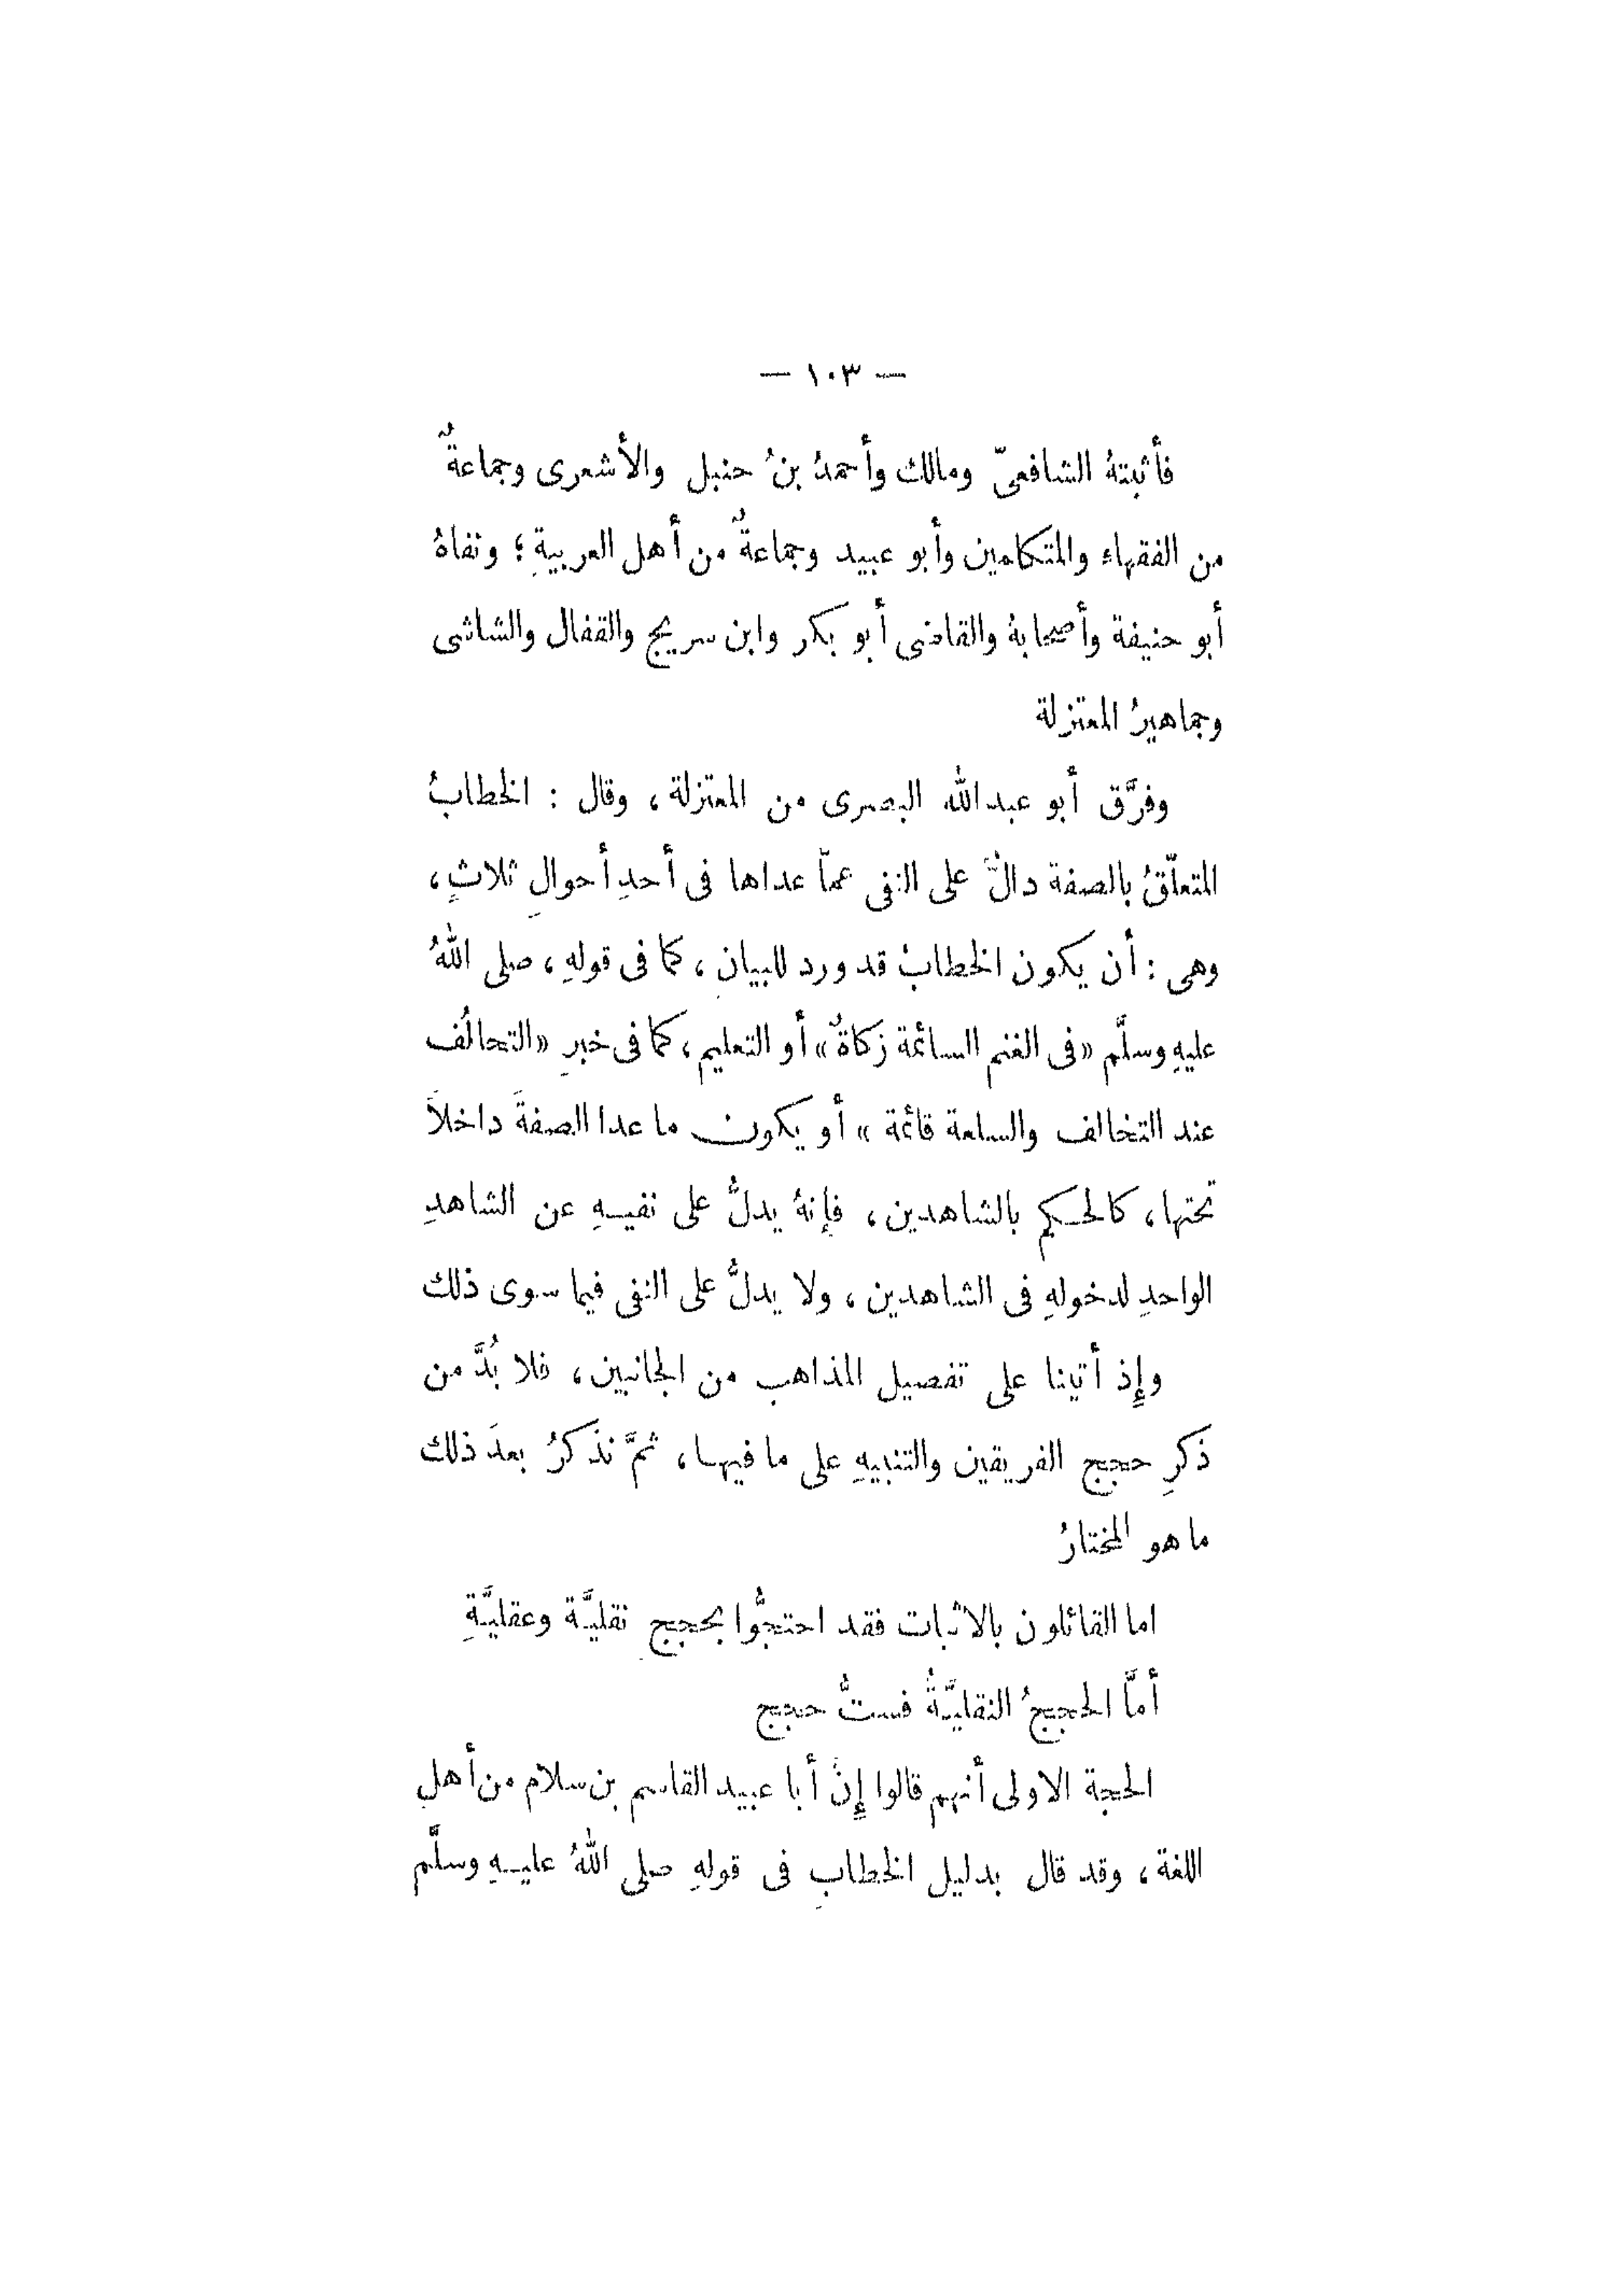 — ١٠٣ —
فأثبتهُ الشافعىّ ومالك وأحمدُ بنُ حنبل والأشعرى وجماعةٌ
من الفقهاء والمتكلمين وأبو عبيد وجماعةٌ من أهل العربيةِ ؛ ونفاهُ
أبو حنيفة وأصحابهُ والقاضى أبو بكر وابن سريج والقفال والشاشى
وجماهيرُ المعتزلة
وفرَّق أبو عبد الله البصرى من المعتزلة ، وقال : الخطابُ
المتعلّقُ بالصفة دالٌّ على النفى عمّا عداها فى أحدِ أحوالِ ثلاثٍ ،
وهى : أن يكون الخطابُ قد ورد للبيانِ ، كما فى قولهِ ، صلى اللهُ
عليهِ وسلَّم «فى الغنم السائمة زكاةٌ» أو التعليمِ ، كما فى خبرِ «التحالُف
عند التخالف والسلعة قائمة » أو يكون ما عدا الصفةَ داخلاً
تحتها ، كالحكمِ بالشاهدين ، فإنهُ يدلُّ على نفيهِ عن الشاهدِ
الواحدِ لدخولهِ فى الشاهدين ، ولا يدلُّ على النفى فيما سوى ذلك
وإِذ أتينا على تفصيل المذاهب من الجانبين ، فلا بُدَّ من
ذكرِ حجج الفريقين والتنبيهِ على ما فيها ، ثمَّ نذكرُ بعدَ ذلك
ما هو المختارُ
اما القائلون بالاثبات فقد احتجُّوا بحججٍ نقليَّة وعقليَّةِ
أمَّا الحججُ النقليَّةُ فستُّ حجج
الحجة الاولى أنهم قالوا إِنَّ أبا عبيد القاسم بن سلام من أهلِ
اللغة ، وقد قال بدليل الخطابِ فى قولهِ صلى اللهُ عليهِ وسلَّم